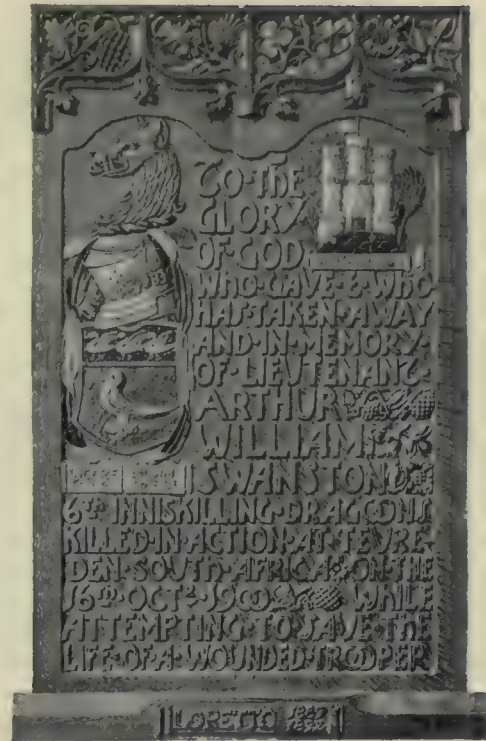 TO·THE
GLORY
OF·GOD
WHO·GAVE·&·WHO
HAS·TAKEN·AWAY
AND·IN·MEMORY·
OF·LIEUTENANT·
ARTHUR
WILLIAM
SWANSTON
6TH·INNISKILLING·DRAGOONS
KILLED·IN·ACTION·AT·TEVRE-
DEN·SOUTH·AFRICA·ON·THE
16TH·OCTR·1900 WHILE
ATTEMPTING·TO·SAVE·THE
LIFE·OF·A·WOUNDED·TROOPER
LORETTO